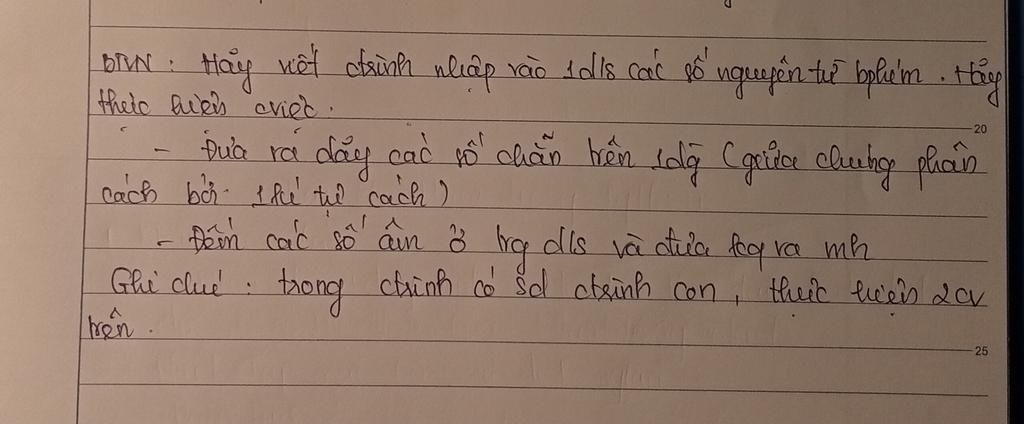 BTVN : Hãy viết ctrình nhập vào 1dls các số nguyên từ bphím. Hãy
thực hiện cviệc.
- Đưa ra dãy các số chẵn trên 1dg (giữa chúng phân
cách bởi 1 kí tự cách)
- Đếm các số âm ở trg dls và đưa kq ra mh
Ghi chú : trong ctrình có sd ctrình con, thực hiện 2cv
trên.
20
25